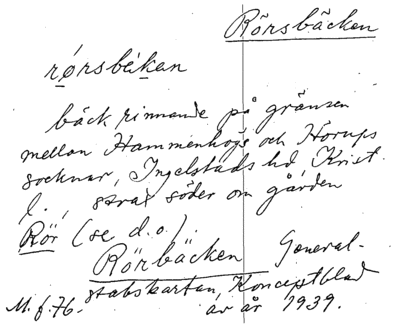 Rörsbäcken
rørsbékan
bäck rinnande på gränsen
mellan Hammenhögs och Horups
socknar, Ingelstads hd, Krist.
l., strax söder om gården
Rör (se d.o.).
Rörbäcken General-
stabskartan, Konceptblad
av år 1939.
M. f. 76.